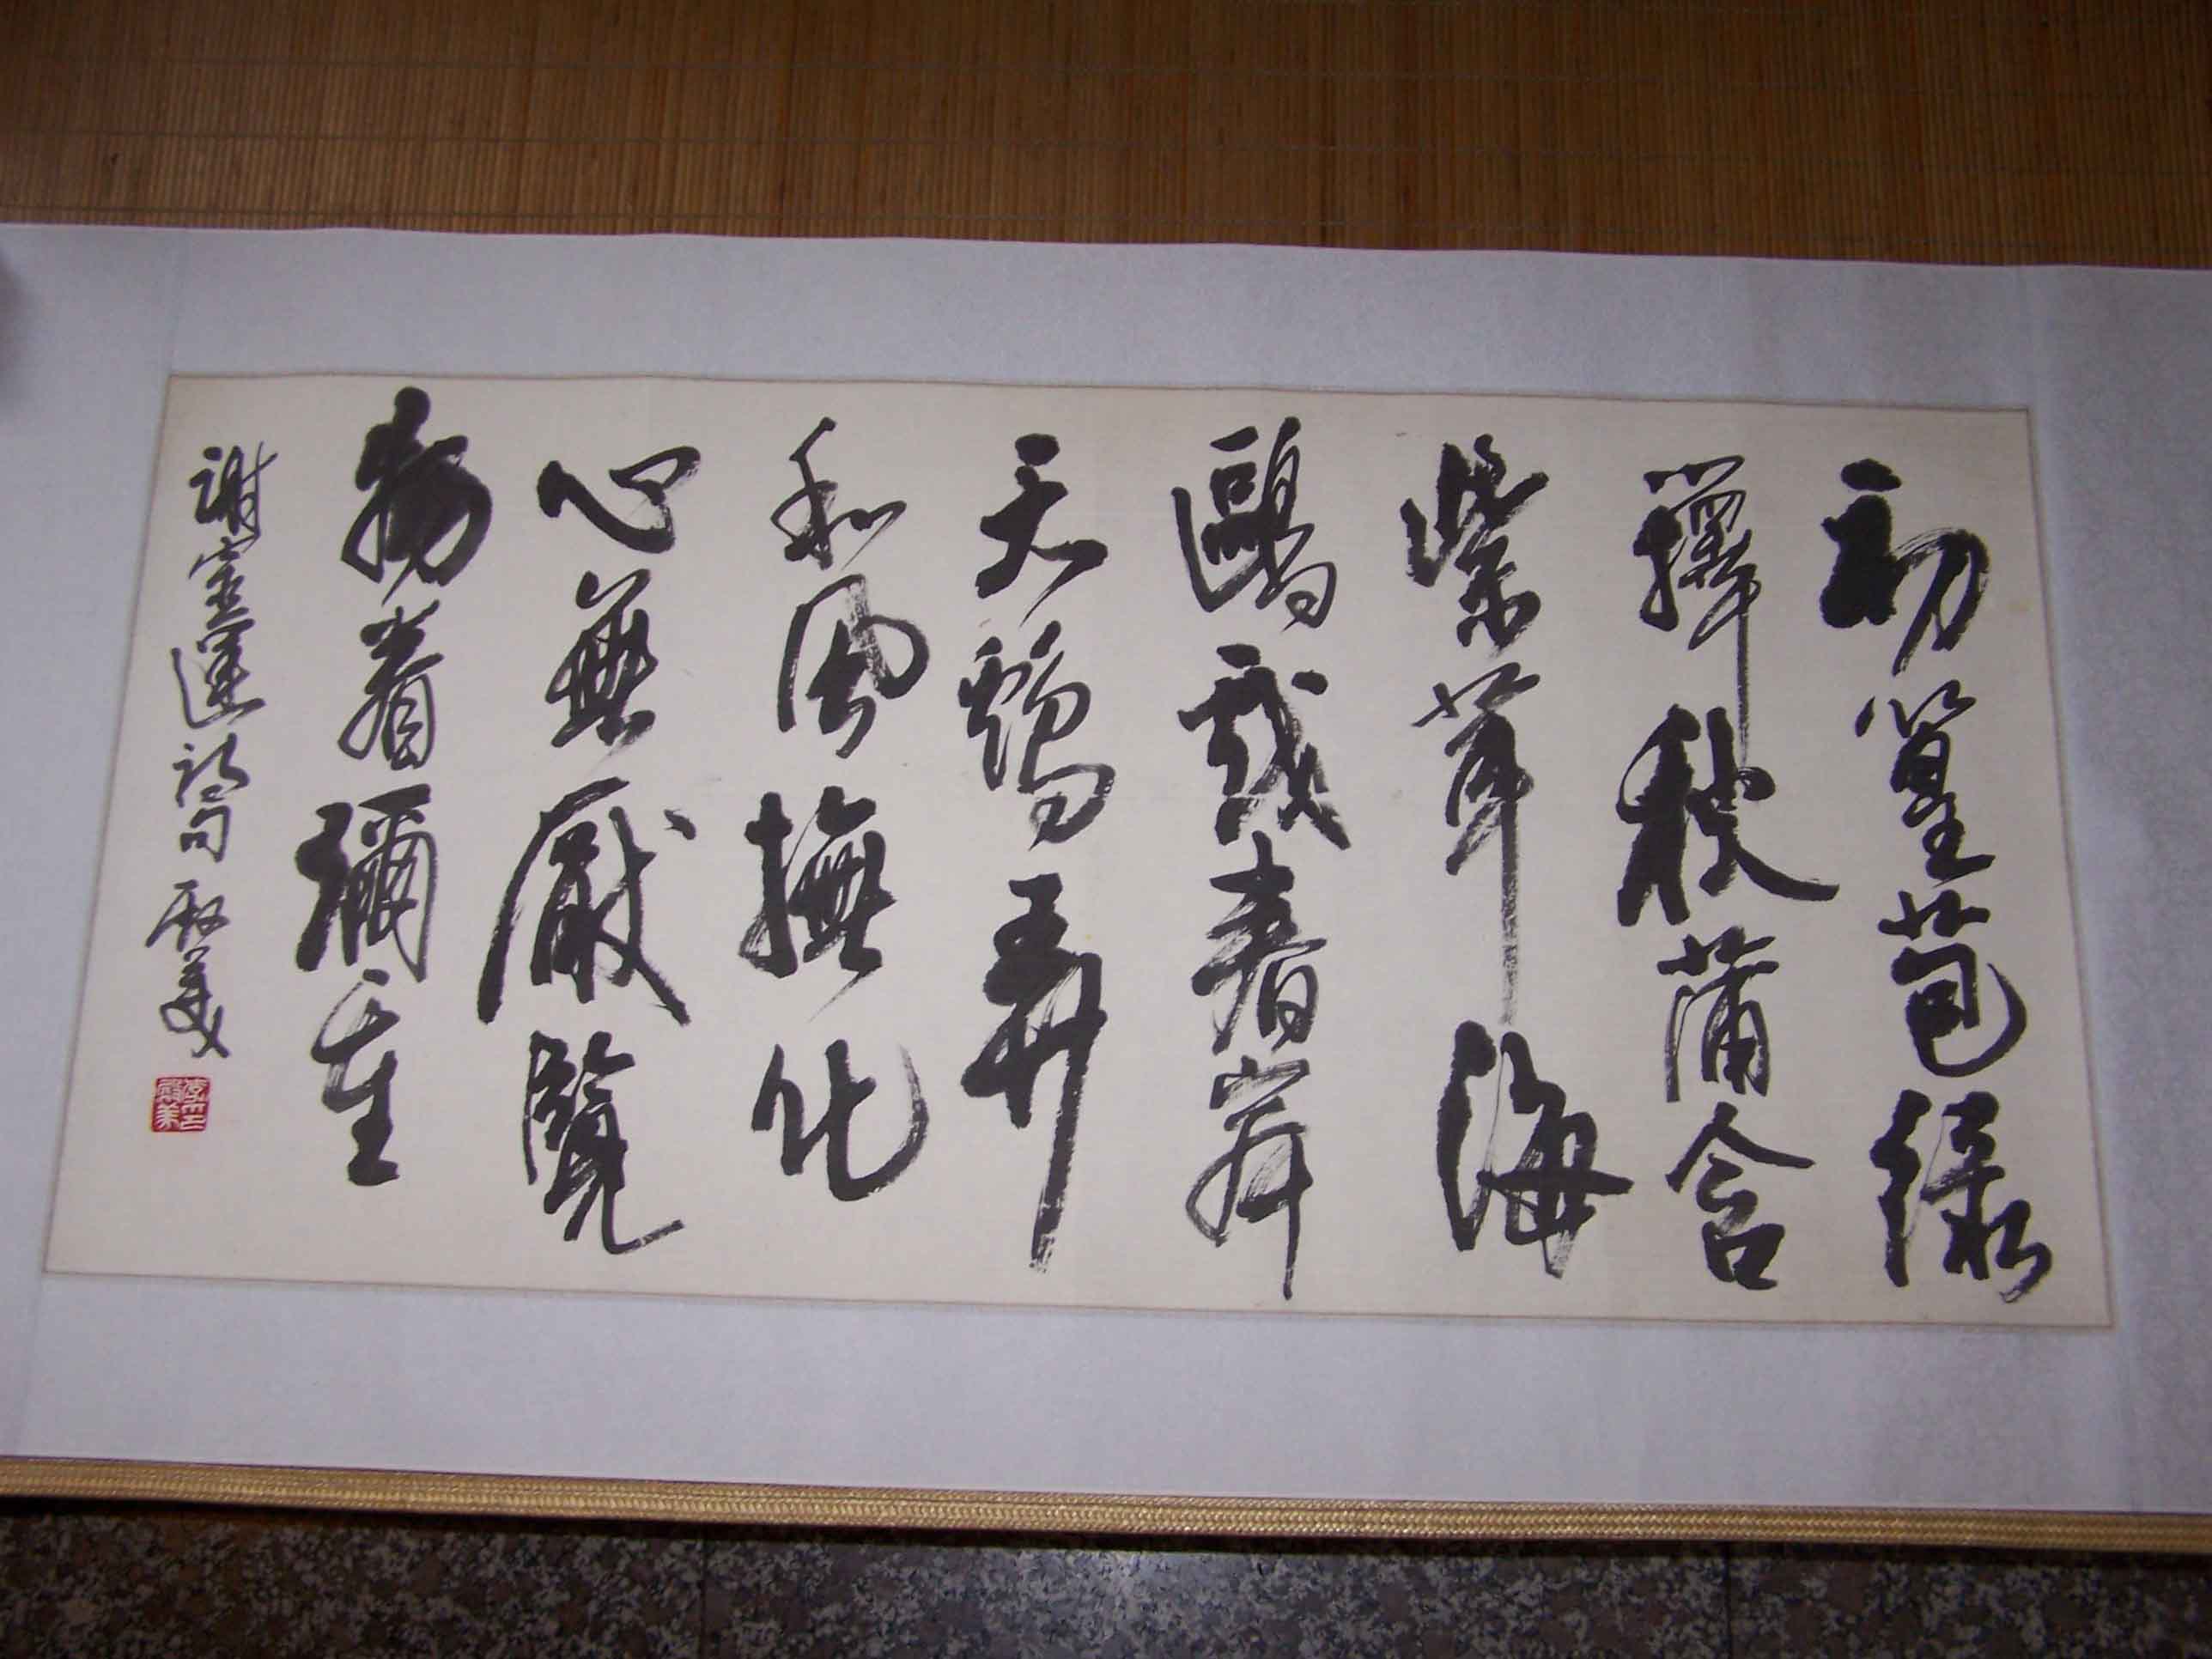 初篁苞綠
籜蒲含
紫茸海
鷗戲春岸
天鷄弄
和風撫化
心無厭覽
物眷彌重
謝靈運詩句